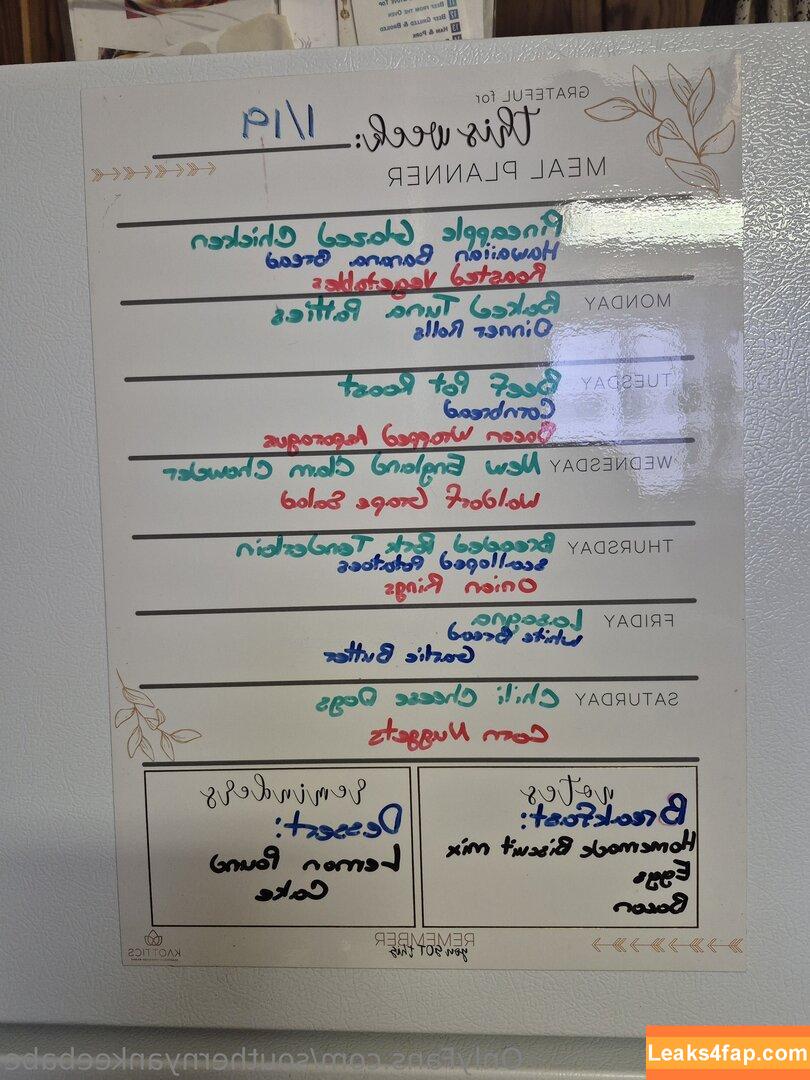 BEEF FROM THE OVEN
BEEF GRILLED & BROILED
HAM & PORK
GRATEFUL for
this week: 1/19
MEAL PLANNER
Pineapple Glazed Chicken
Hawaiian Banana Bread
Roasted Vegetables
MONDAY Baked Tuna Patties
Dinner Rolls
TUESDAY Beef Pot Roast
Cornbread
Bacon Wrapped Asparagus
WEDNESDAY New England Clam Chowder
Waldorf Grape Salad
THURSDAY Breaded Pork Tenderloin
Scalloped Potatoes
Onion Rings
FRIDAY Lasagna
White Bread
Garlic Butter
SATURDAY Chili Cheese Dogs
Corn Nuggets
notes
Breakfast:
Homemade Biscuit mix
Eggs
Bacon
reminders
Dessert:
Lemon Pound
Cake
REMEMBER
you GOT this
KAOTTICS
OnlyFans.com/southernyankeebabe
Leaks4fap.com